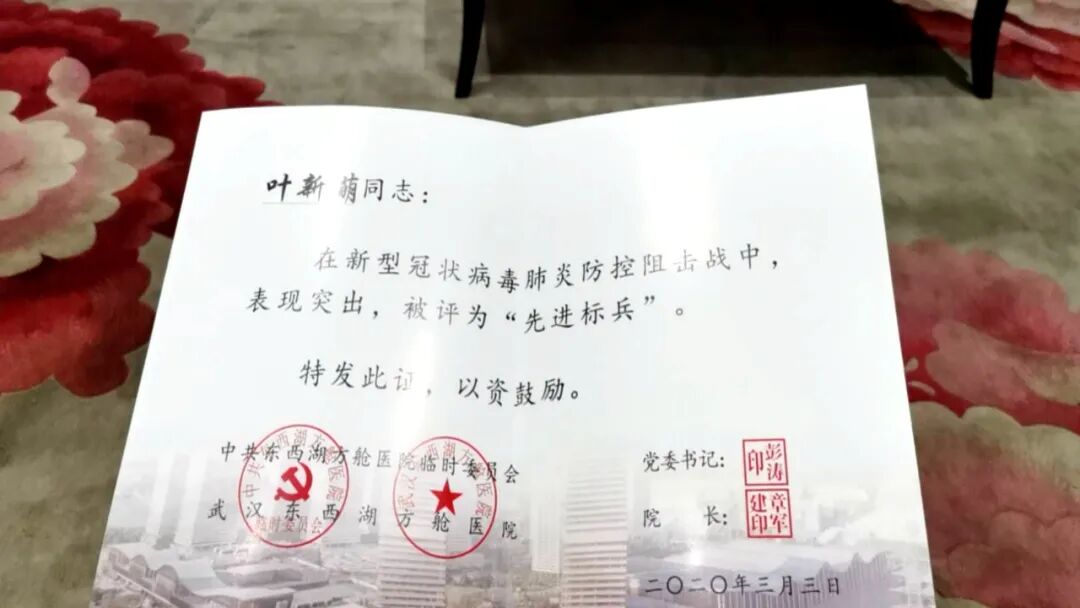 叶新萌同志：
在新型冠状病毒肺炎防控阻击战中，
表现突出，被评为“先进标兵”。
特发此证，以资鼓励。
中共东西湖方舱医院临时委员会
武汉东西湖方舱医院
党委书记：
彭涛印
院 长：
章军建印
二〇二〇年三月三日